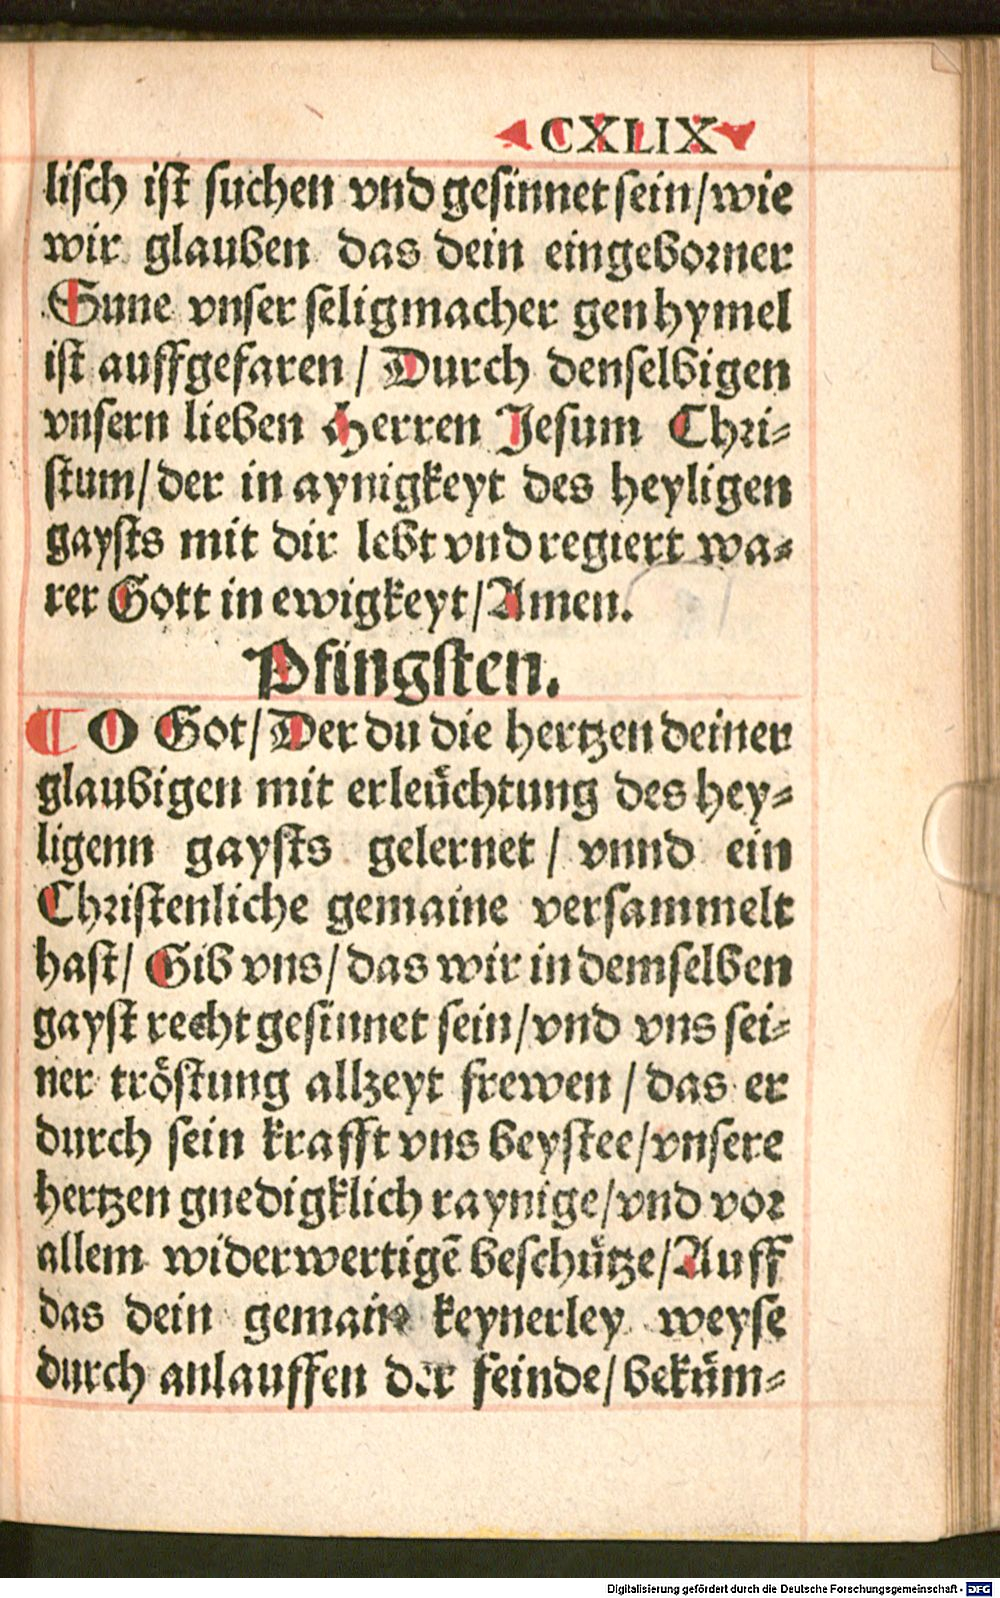 CXLIX
lisch ist suchen vnd gesinnet sein/wie
wir glauben das dein eingeborner
Sune vnser seligmacher gen hymel
ist auffgefaren / Durch denselbigen
vnsern lieben Herren Jesum Chri⸗
stum/der in aynigkeyt des heyligen
gaysts mit dir lebt vnd regiert wa⸗
rer Gott in ewigkeyt/Amen.
Pfingsten.
¶ O Got/Der du die hertzen deiner
glaubigen mit erleüchtung des hey⸗
ligenn gaysts gelernet / vnnd ein
Christenliche gemaine versammelt
hast/ Gib vns/das wir in demselben
gayst recht gesinnet sein/vnd vns sei⸗
ner tröstung allzeyt frewen / das er
durch sein krafft vns beystee/vnsere
hertzen gnedigklich raynige/vnd vor
allem widerwertigē beschütze/Auff
das dein gemain keynerley weyse
durch anlauffen der feinde/beküm⸗
Digitalisierung gefördert durch die Deutsche Forschungsgemeinschaft - DFG